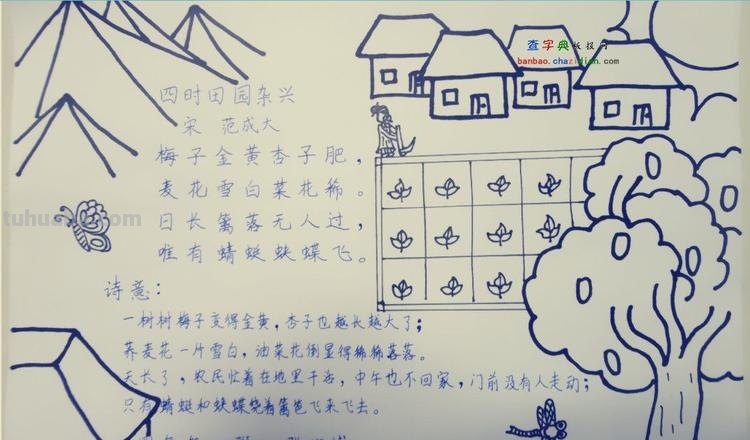 查字典板报网
banbao.chazidian.com
四时田园杂兴
宋 范成大
梅子金黄杏子肥，
麦花雪白菜花稀。
日长篱落无人过，
唯有蜻蜓蛱蝶飞。
诗意：
一树树梅子变得金黄，杏子也越长越大了；
荞麦花一片雪白，油菜花倒显得稀稀落落。
天长了，农民忙着在地里干活，中午也不回家，门前没有人走动；
只有蜻蜓和蛱蝶绕着篱笆飞来飞去。